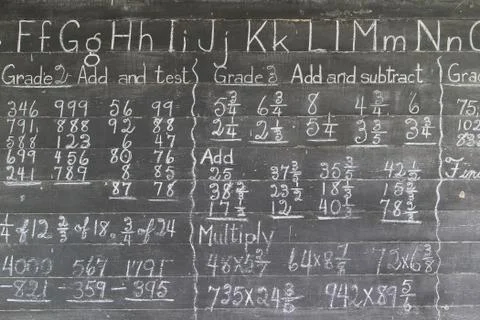 Ff Gg Hh Ii Jj Kk Ll Mm Nn
Grade 2 Add and test
346 999 56 99
791 888 92 88
588 123 6 47
699 456 80 76
241 789 8 85
87 78
1/4 of 12 2/3 of 18. 3/4 of 24
4000 567 1791
-821 -359 -395
Grade 3 Add and subtract
5 3/4 6 3/4 8 4 3/4 6
2 1/4 2 1/2 5 1/4 3 3/5 3 3/4
Add
25 37 35 42
38 23 1/2 18 15
17 12 40 78
Multiply
48×5 2/7 64×8 7/8 72×6 3/8
735×24 3/5 942×89 5/6
Gra
75
102
833